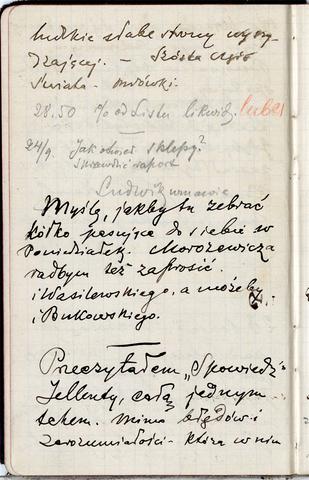 ludzkie słabe strony
dzającej. – Szóstka
świata. – mrówki.
28.50 % od Listu likwid.
24/9. Jak obnieś sklepy?
sprawdzić raport
Ludwik
Myślę, jakby tu zebrać
kółko pasujące do siebie w
Poniedziałek. Morozewicza
radbym też zaprosić.
i Wasilewskiego, a możeby
i Bukowskiego.
Przeczytałem „Spowiedź"
Jellenty, całą jednym
tchem. Mimo błędów i
zarozumiałości – która w nim